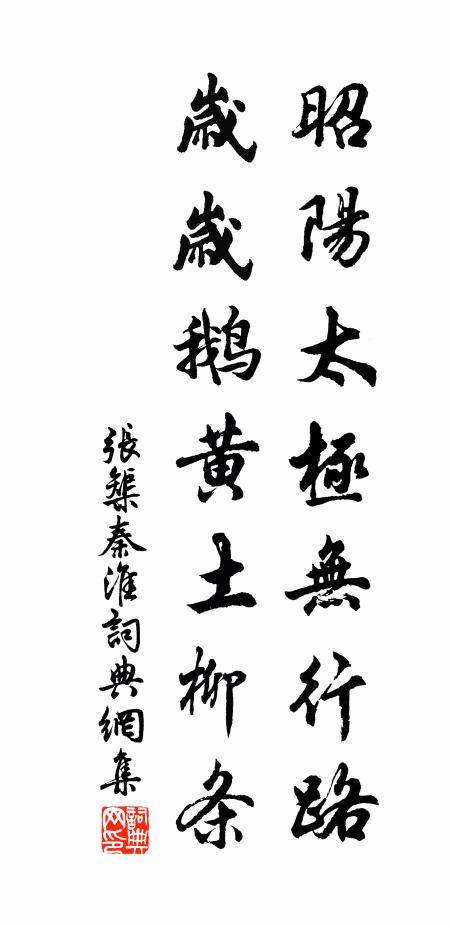 昭陽太極無行路
歲歲鵝黃土柳条
張槼秦淮詞典網集
詞典网印